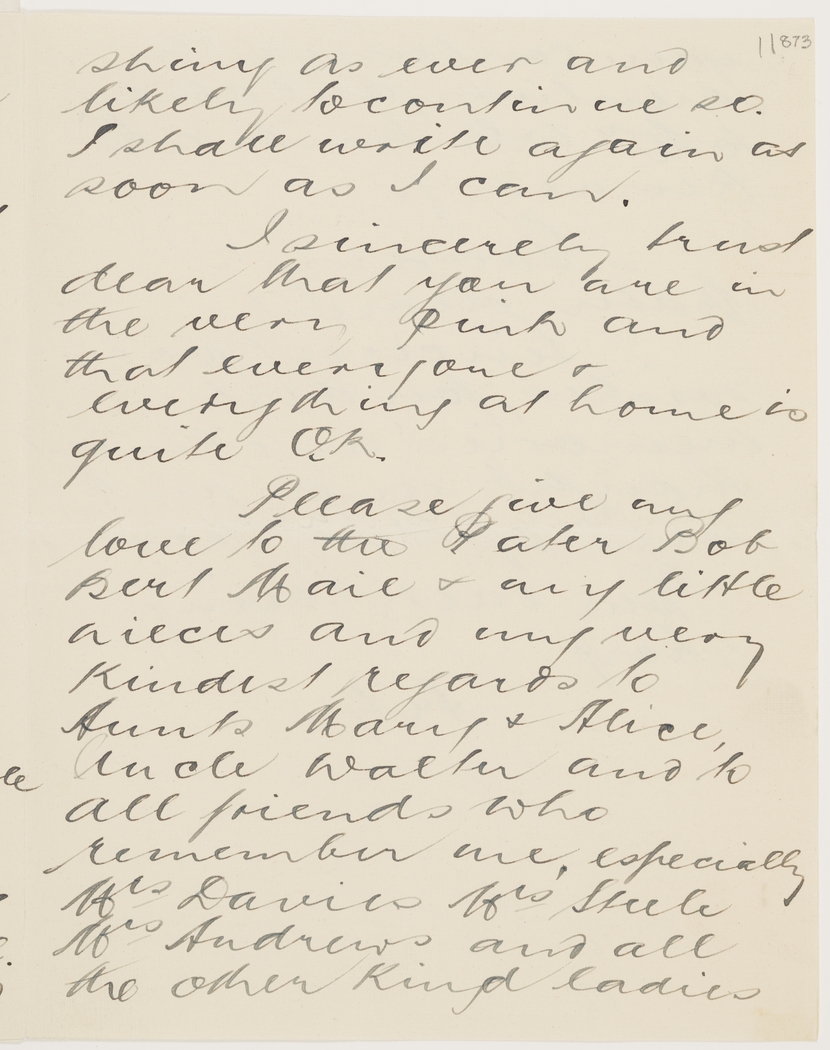 11873
shing as ever and
likely to continue so.
I shall write again as
soon as I can.
I sincerely trust
dear that you are in
the very pink and
that everyone &
everything at home is
quite O.K.
Please give my
love to the Pater Bob
Bert Mair & my little
nieces and my very
kindest regards to
Aunts Mary & Alice,
Uncle Walter and to
all friends who
remember me, especially
Mrs Davies Mrs Steele
Mrs Andrews and all
the other kind ladies